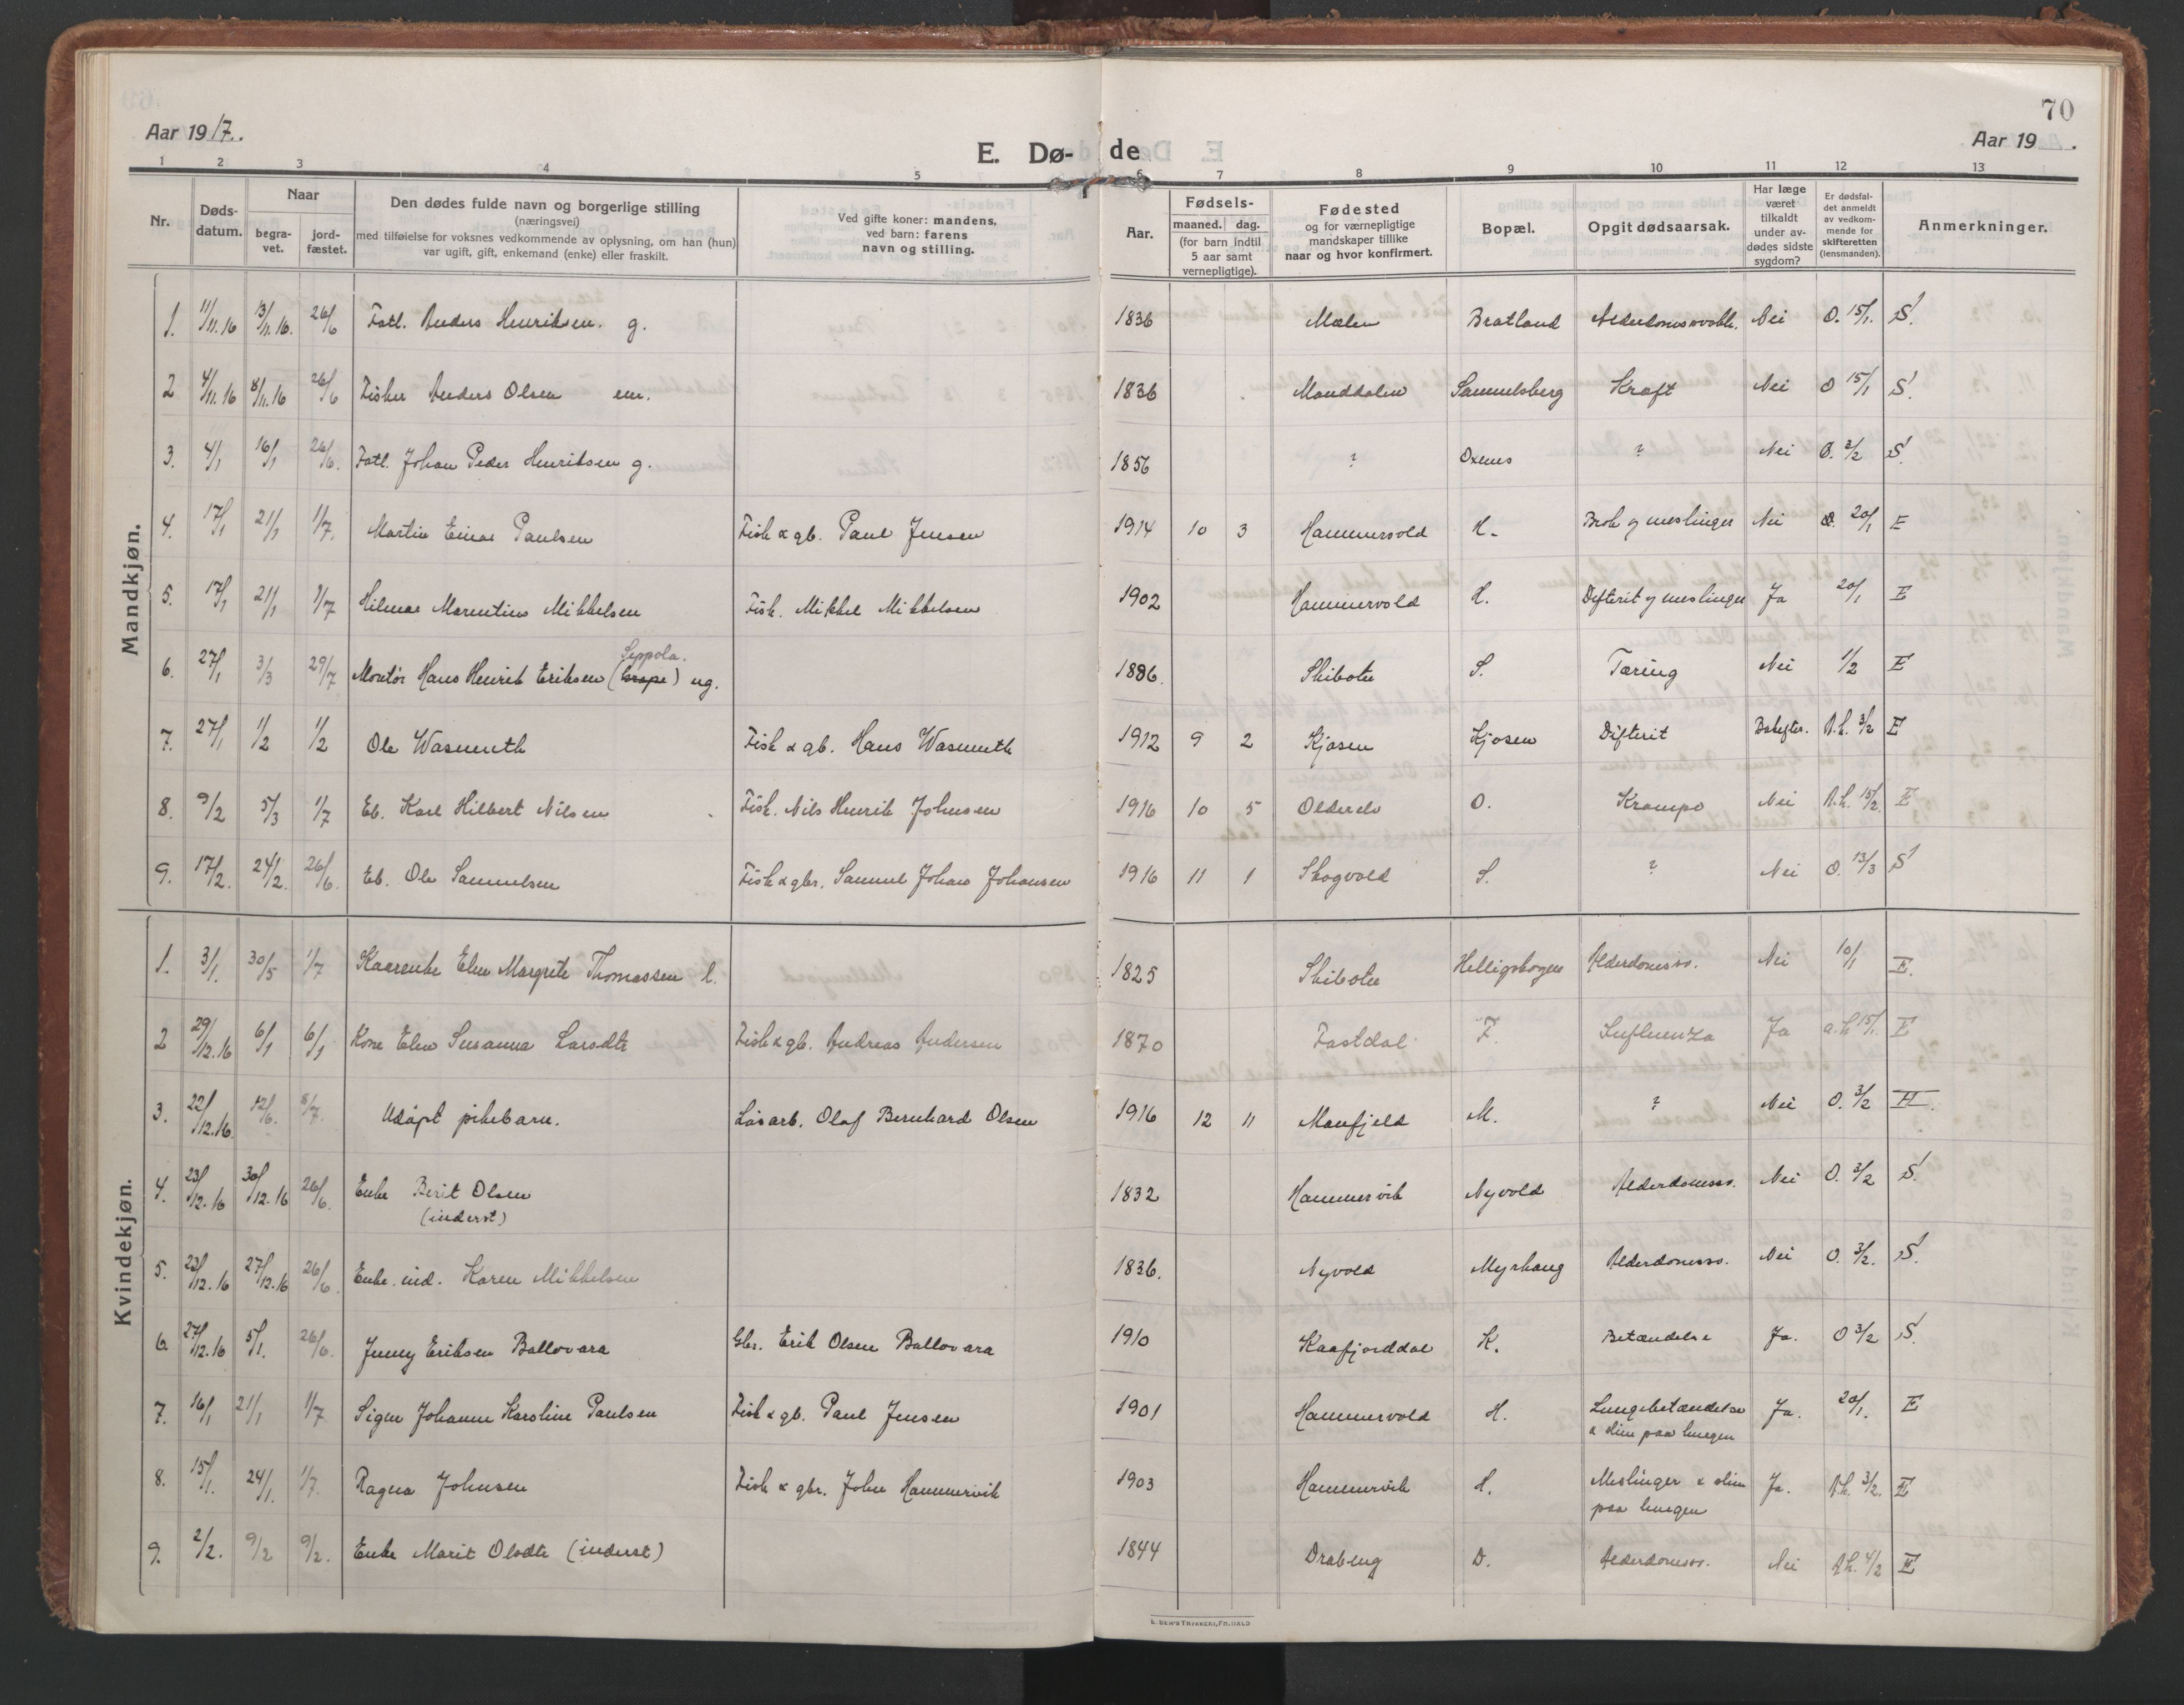 70
Aar 1917.
Aar 19 .
E. Dø- de
1 2 3 4 5 6 7 8 9 10 11 12 13
Nr.
Døds-
datum.
Naar
begra-
vet.
jord-
fæstet.
Den dødes fulde navn og borgerlige stilling
(næringsvei)
med tilføielse for voksnes vedkommende av oplysning, om han (hun)
var ugift, gift, enkemand (enke) eller fraskilt.
Ved gifte koner: mandens,
ved barn: farens
navn og stilling.
Aar.
Fødsels-
maaned. dag.
(for barn indtil
5 aar samt
vernepligtige).
Fødested
og for værnepligtige
mandskaper tillike
naar og hvor konfirmert.
Bopæl.
Opgit dødsaarsak.
Har læge
været
tilkaldt
under av-
dødes sidste
sygdom?
Er dødsfal-
det anmeldt
av vedkom-
mende for
skifteretten
(lensmanden).
Anmerkninger.
Mandkjøn.
1. 11/11.16 13/11.16. 26/6 Fatl. Anders Henriksen. g. 1836 Malen Bratland Alderdomssvakh. Nei O. 15/1. S.
2 4/11.16 8/11.16 26/6 Fisker Anders Olsen em. 1836 Manddalen Samuelsberg Kræft Nei O 15/1 S.
3. 4/1 16/1 26/6. Fatl. Johan Peder Henriksen g. 1856 ? Oxenes ? Nei O. 3/2 S.
4. 17/1 21/1 1/7. Martin Einar Paulsen Fisk & gb. Paul Jensen 1914 10 3 Hammervold H. Brok og meslinger Nei O. 20/1 E
5. 17/1 21/1 1/7 Hilmar Marentius Mikkelsen Fisk. Mikkel Mikkelsen 1902 Hammervold H. Difterit og meslinger Ja 20/1 E
Seppola.
6. 27/1 3/3 29/7 Montør Hans Henrik Eriksen ( ) ug. 1886. Skiboten S. Tæring Nei 1/2 E
7. 27/1 1/2 1/2 Ole Wasmuth Fisk & gb. Hans Wasmuth 1912 9 2 Kjosen Kjosen Difterit A.h. 3/2 E
8. 9/2 5/3 1/7 Eb. Karl Hilbert Nilsen Fisk. Nils Henrik Johnsen 1916 10 5 Olderelv O. Krampe Nei A.h. 15/2. E
9. 17/2. 24/2. 26/6. Eb. Ole Samuelsen Fisk & gbr. Samuel Johan Johansen 1916 11 1 Skogvold S. ? Nei O. 13/3 S
Kvindekjøn.
1. 3/1. 30/5 1/7 Kaarenke Elen Margrete Thomassen l. 1825 Skiboten Helligskogen Alderdomssv. Nei 10/1 E.
2 29/12.16 6/1 6/1 Kone Elen Susanna Larsdtr Fisk & gb. Andreas Andersen 1870 Fastdal F. Influenza Ja a.h 15/1. E
3. 22/12.16. 12/6. 8/7. Udøpt pikebarn. Løsarb. Olaf Bernhard Olsen 1916 12 11 Manfjeld M. ? Nei O. 3/2 II.
4. 23/12.16 30/12.16 26/6. Enke Berit Olsen 1832 Hammervik Nyvold Alderdomssv. Nei O. 3/2 S.
(inderst)
5. 23/12.16 27/12.16 26/6. Enke. ind. Karen Mikkelsen 1836. Nyvold Myrhaug Alderdomssv. Nei O. 3/2. S.
6. 27/12.16 5/1. 26/6. Jenny Eriksen Ballovara Gbr. Erik Olsen Ballovara 1910 Kaafjorddal K. Betændelse Ja. O 3/2 S.
7. 16/1 21/1 1/7 Signe Johanne Karoline Paulsen Fisk & gb. Paul Jensen 1901 Hammervold H. Lungebetændelse Ja. 20/1. E
& slim paa lungen
8. 15/1. 24/1. 1/7. Ragna Johnsen Fisk & gbr. John Hammervik 1903 Hammervik H. Meslinger & slim Ja. A.h. 3/2. E
paa lungen
9. 2/2. 9/2 9/2. Enke Marit Olsdtr (inderst) 1844 Drabeng D. Alderdomssv. Nei A.h. 4/2 E
E. SEM'S TRYKKERI, FR.HALD